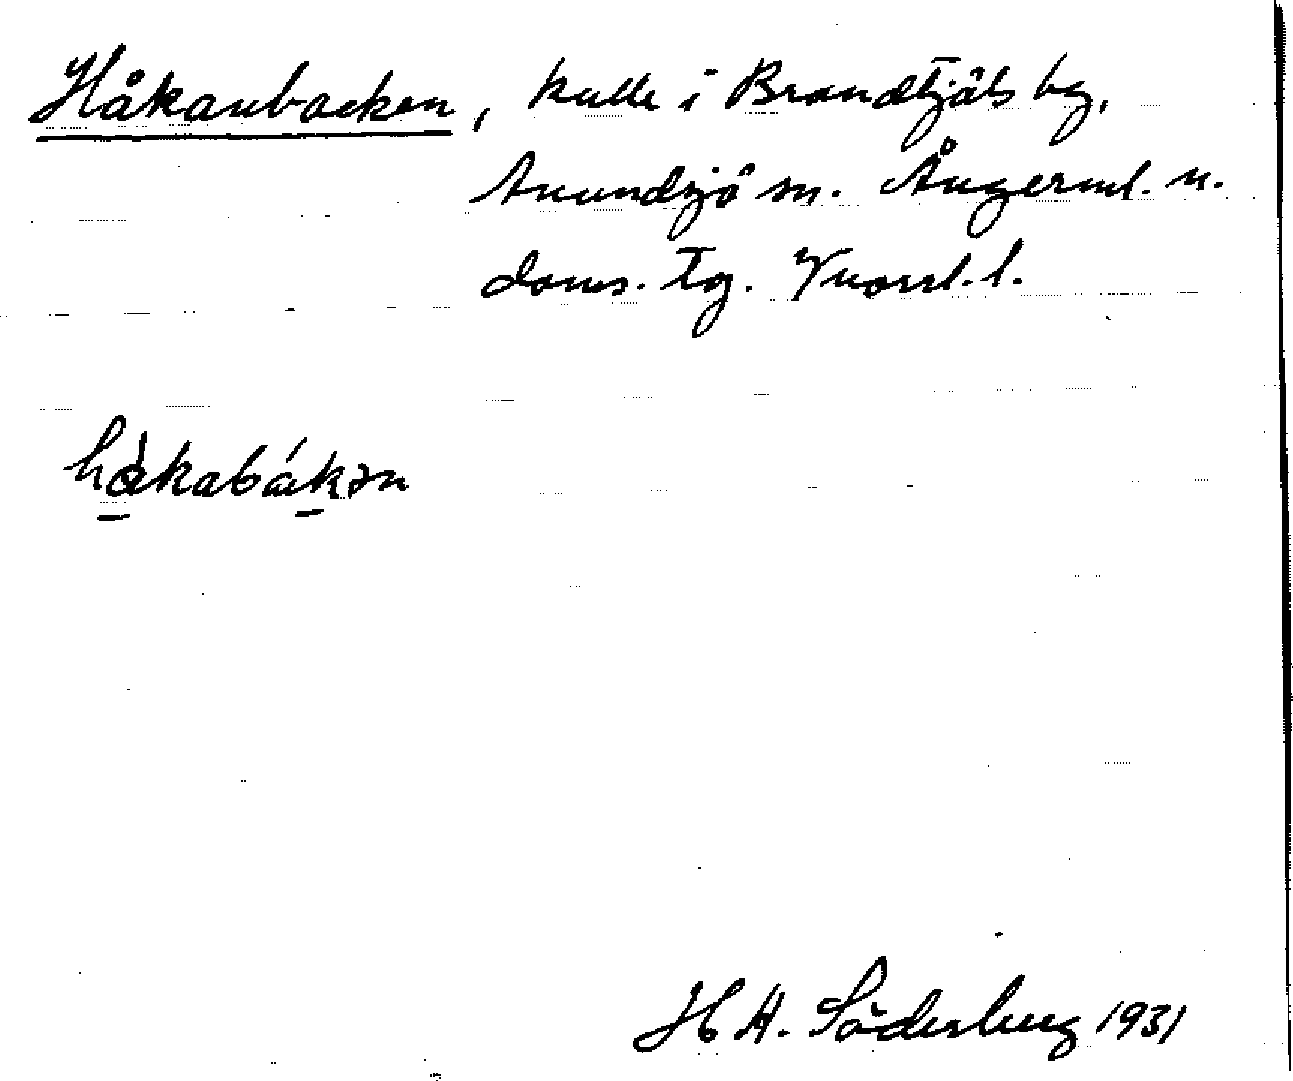 Håkanbacken, kulle i Brandtjäls bg,
Anundsjö sn. Ångerml. n.
doms. tg. Vnorrl. l.
håkabákən
H A. Söderberg 1931